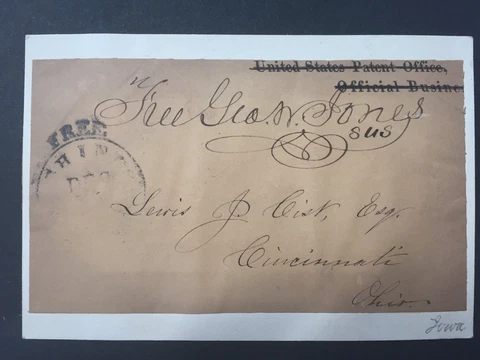 United States Patent Office,
Official Busine
Free Geo. W. Jones
SUS
FREE
HINGT
DEC
Lewis J. Cist, Esq.
Cincinnati
Ohio.
Iowa